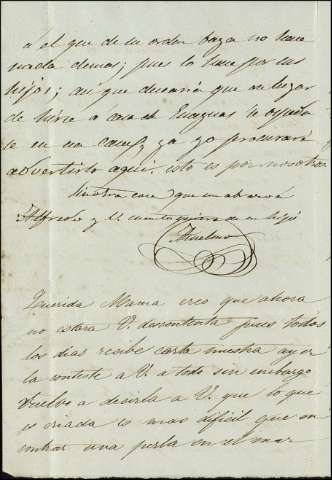 á el que de su orden haga no hace
nada demas; pues lo hace por sus
hijos; asi que desearia que en lugar
de á casa de
se en ya yo procurará
advertirlo aqui. esto es por nosotros
casa que un abrazo á
Alfredo y V. cuanto quiera de su hijo
Anselmo
Querida Mama creo que ahora
no estara V. descontenta pues todos
los dias recibe carta nuestra ayer
la conteste á V. á todo sin embargo
vuelvo a decirla á V. que lo que
es criada es mas dificil que en
contrar una perla en el mar